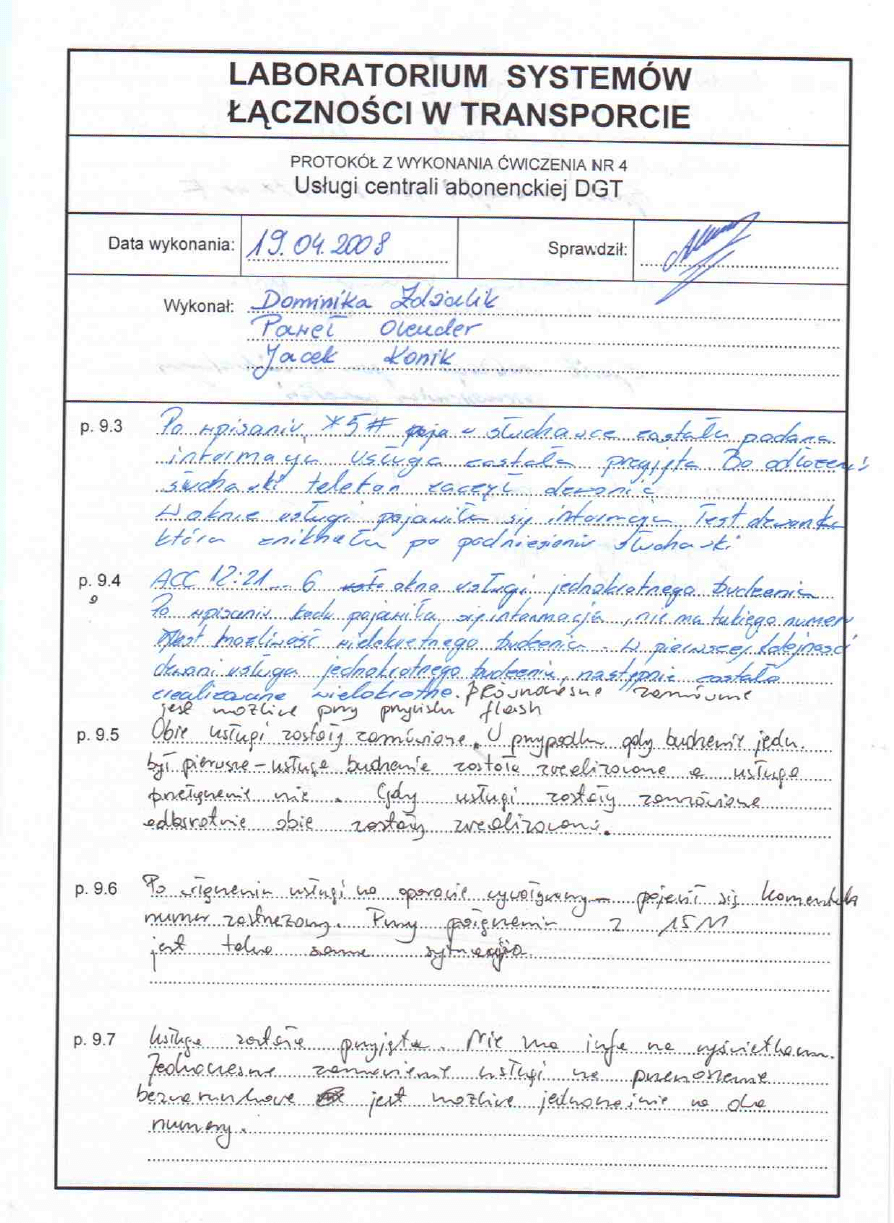 LABORATORIUM SYSTEMÓW
ŁĄCZNOŚCI W TRANSPORCIE
PROTOKÓŁ Z WYKONANIA ĆWICZENIA NR 4
Usługi centrali abonenckiej DGT
Data wykonania: 19.04.2008 Sprawdził:
Wykonał: Dominika
Paweł Oleuder
Jacek Konik
p. 9.3 Po wpisaniu *5# w słuchawce została podana
informacja usługa została przyjęta Do odłożeni
słuchawki telefon zaczął dzwonić
W oknie usługi pojawiła się informacja Test dzwonka
która zniknęła po podniesieniu słuchawki
p. 9.4 ACC 12:21 6 okno usługi jednokrotnego budzenia
Po wpisaniu kodu pojawiła się informacja, nie ma takiego numeru
Jest możliwość wielokrotnego budzenia - w pierwszej kolejności
dzwoni usługa jednokrotnego budzenia, następnie została
zrealizowane wielokrotne. Równoczesne zamówine
jest możliwe przy przycisku flash
p. 9.5 Obie usługi zostały zamówione. W przypadku gdy budzenie jedn.
był pierwsze - usługa budzenie została zrealizowane a usługa
przełączenie nie. Gdy usługi zostały zamówione
odwrotnie obie zostały zrealizowane.
p. 9.6 Po włączeniu usługi na aparacie wywoływanym pojawił się komentarz
numer zastrzeżony. Przy połączeniu z 15M
jest taka sama sytuacja
p. 9.7 Usługa została przyjęta. Nie ma info na wyświetlaczu.
Jednoczesne zamówienie usługi na przenoszenie
bezwarunkowe jest możliwe jednocześnie na dwa
numery.